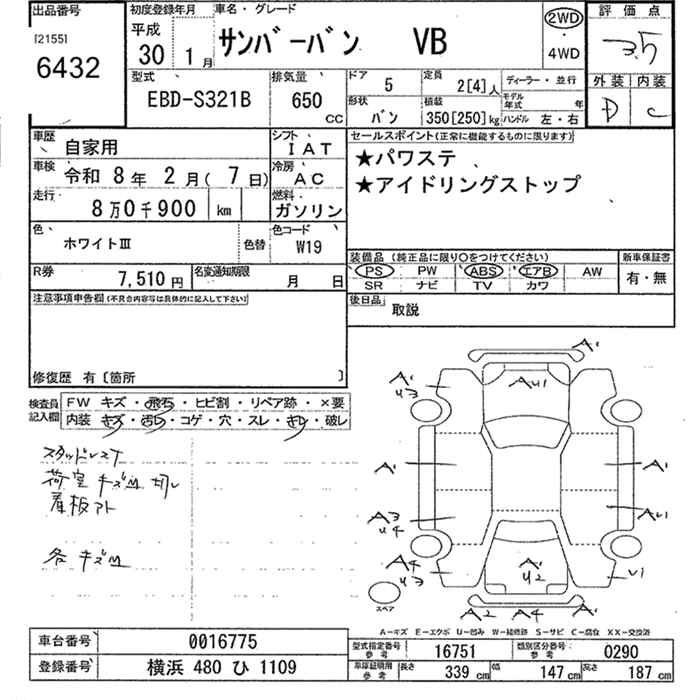 出品番号
[2155]
6432
初度登録年月
平成
30 年 1 月
車名・グレード
サンバーバン VB
2WD
・
4WD
評価点
3.5
外装 内装
D C
型式
EBD-S321B
排気量
650 CC
ドア
5
定員
2[4]人
ディーラー・並行
モデル年式 年
形状
バン
積載
350[250]kg
ハンドル 左・右
車歴
自家用
シフト
IAT
車検
令和 8年 2月( 7日)
冷房
AC
走行
8万0千900 km
燃料
ガソリン
色
ホワイトⅢ
色替
色コード
W19
R券
7,510 円
名変通知期限
月 日
セールスポイント(正常に機能するものに限ります)
★パワステ
★アイドリングストップ
装備品 (純正品に限り○をつけてください)
PS PW ABS エアB AW
SR ナビ TV カワ
新車保証書
有・無
後日品
取説
注意事項申告欄(不具合内容等は具体的に記入して下さい)
修復歴 有〔箇所 〕
検査員
記入欄
FW キズ・飛石・ヒビ割・リペア跡・×要
内装 キズ・汚れ・コゲ・穴・スレ・キレ・破レ
スタッドレス
荷室 キズM 切レ
看板アト
各 キズM
A1
A1
U3
AU1
A1
A1
A3
U4
AU1
A4
U3
A1
U2
U1
スペア
A2 A4 A1
A-キズ E-エクボ U-凹み W-補修跡 S-サビ C-腐食 XX-交換済
車台番号
0016775
登録番号
横浜 480 ひ 1109
型式指定番号
参考
16751
類別区分番号
参考
0290
車庫証明用
参考
長さ
339 cm
幅
147 cm
高さ
187 cm